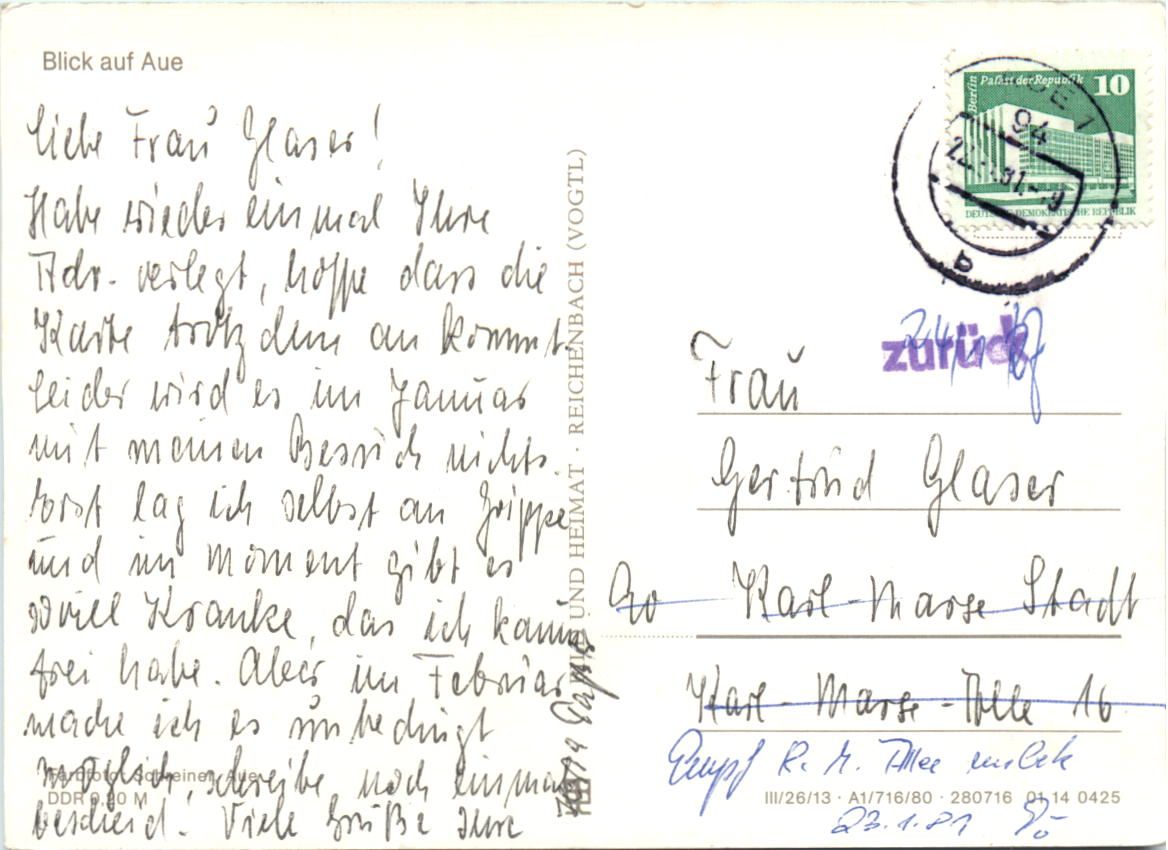 Blick auf Aue
Liebe Frau Glaser!
Habe wieder einmal Ihre
Adr. verlegt, hoffe dass die
Karte trotzdem an kommt.
Leider wird es im Januar
mit meinen Besuch nichts.
Erst lag ich selbst an Grippe
und im Moment gibt es
soviel Kranke, das ich kaum
frei habe. Aber im Februar
mache ich es unbedingt
möglich, schreibe noch einmal
bescheid. Viele Grüße Ihre
Farbfoto: Schreiner, Aue
DDR 0,20 M
BILD UND HEIMAT · REICHENBACH (VOGTL)
Berlin Palast der Republik 10
DEUTSCHE DEMOKRATISCHE REPUBLIK
AUE 1
94
b
zurück
24/1
Frau
Gertrud Glaser
90 Karl-Marx-Stadt
Karl-Marx-Allee 16
Empf K. M. Allee unbek
III/26/13 · A1/716/80 · 280716 01 14 0425
23.1.81